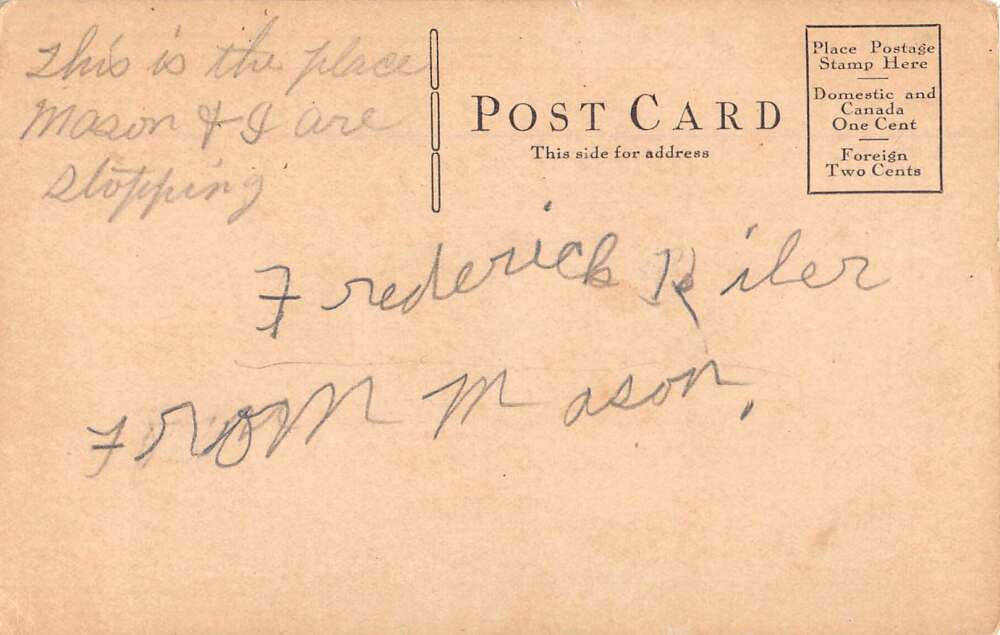 This is the place
Mason & I are
stopping
POST CARD
This side for address
Place Postage
Stamp Here
Domestic and
Canada
One Cent
Foreign
Two Cents
Frederick Riler
From Mason.